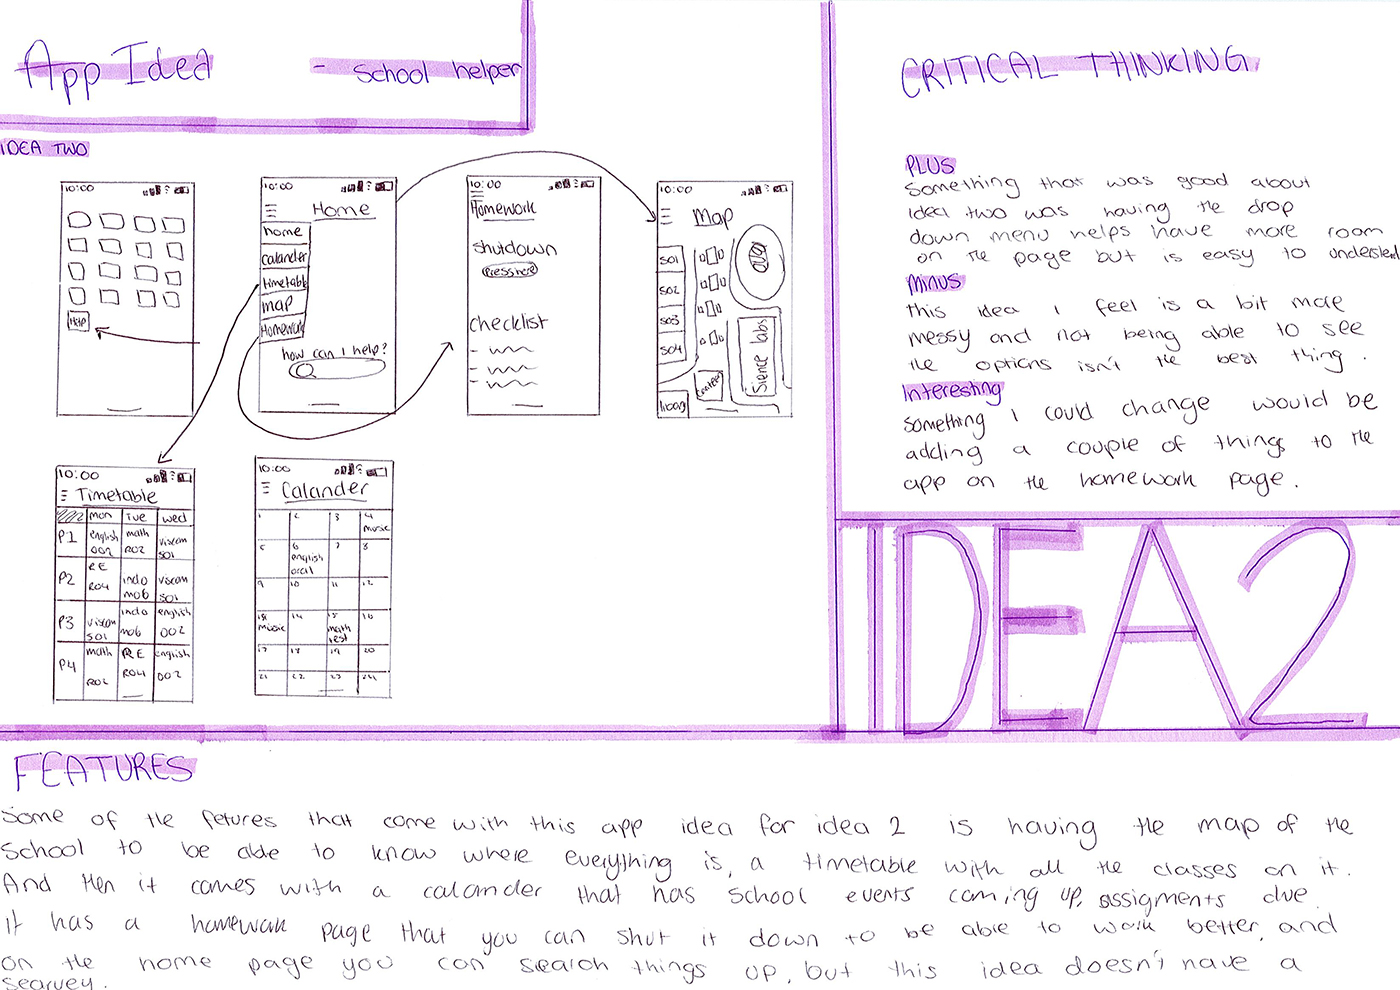 App Idea - School helper
IDEA TWO
10:00
Help
10:00
Home
home
calander
timetable
map
Homework
how can I help?
10:00
Homework
shutdown
press here
checklist
10:00
Map
S01
S02
S03
S04
oval
Sience labs
canteen
library
10:00
Timetable
mon Tue wed
P1 english 002 math R02 viscom S01
P2 RE R04 indo m06 viscom S01
P3 viscom S01 indo m06 english 002
P4 math R02 RE R04 english 002
10:00
Calander
1 2 3 4 music
5 6 english oral 7 8
9 10 11 12
13 music 14 15 math test 16
17 18 19 20
21 22 23 24
CRITICAL THINKING
PLUS
Something that was good about
idea two was having the drop
down menu helps have more room
on the page but is easy to understand
MINUS
this idea I feel is a bit more
messy and not being able to see
the options isn't the best thing.
Interesting
something I could change would be
adding a couple of things to the
app on the homework page.
IDEA 2
FEATURES
Some of the fetures that come with this app idea for idea 2 is having the map of the
School to be able to know where everything is, a timetable with all the classes on it.
And then it comes with a calander that has school events coming up, assigments due.
it has a homework page that you can shut it down to be able to work better, and
on the home page you can search things up, but this idea doesn't have a
searvey.